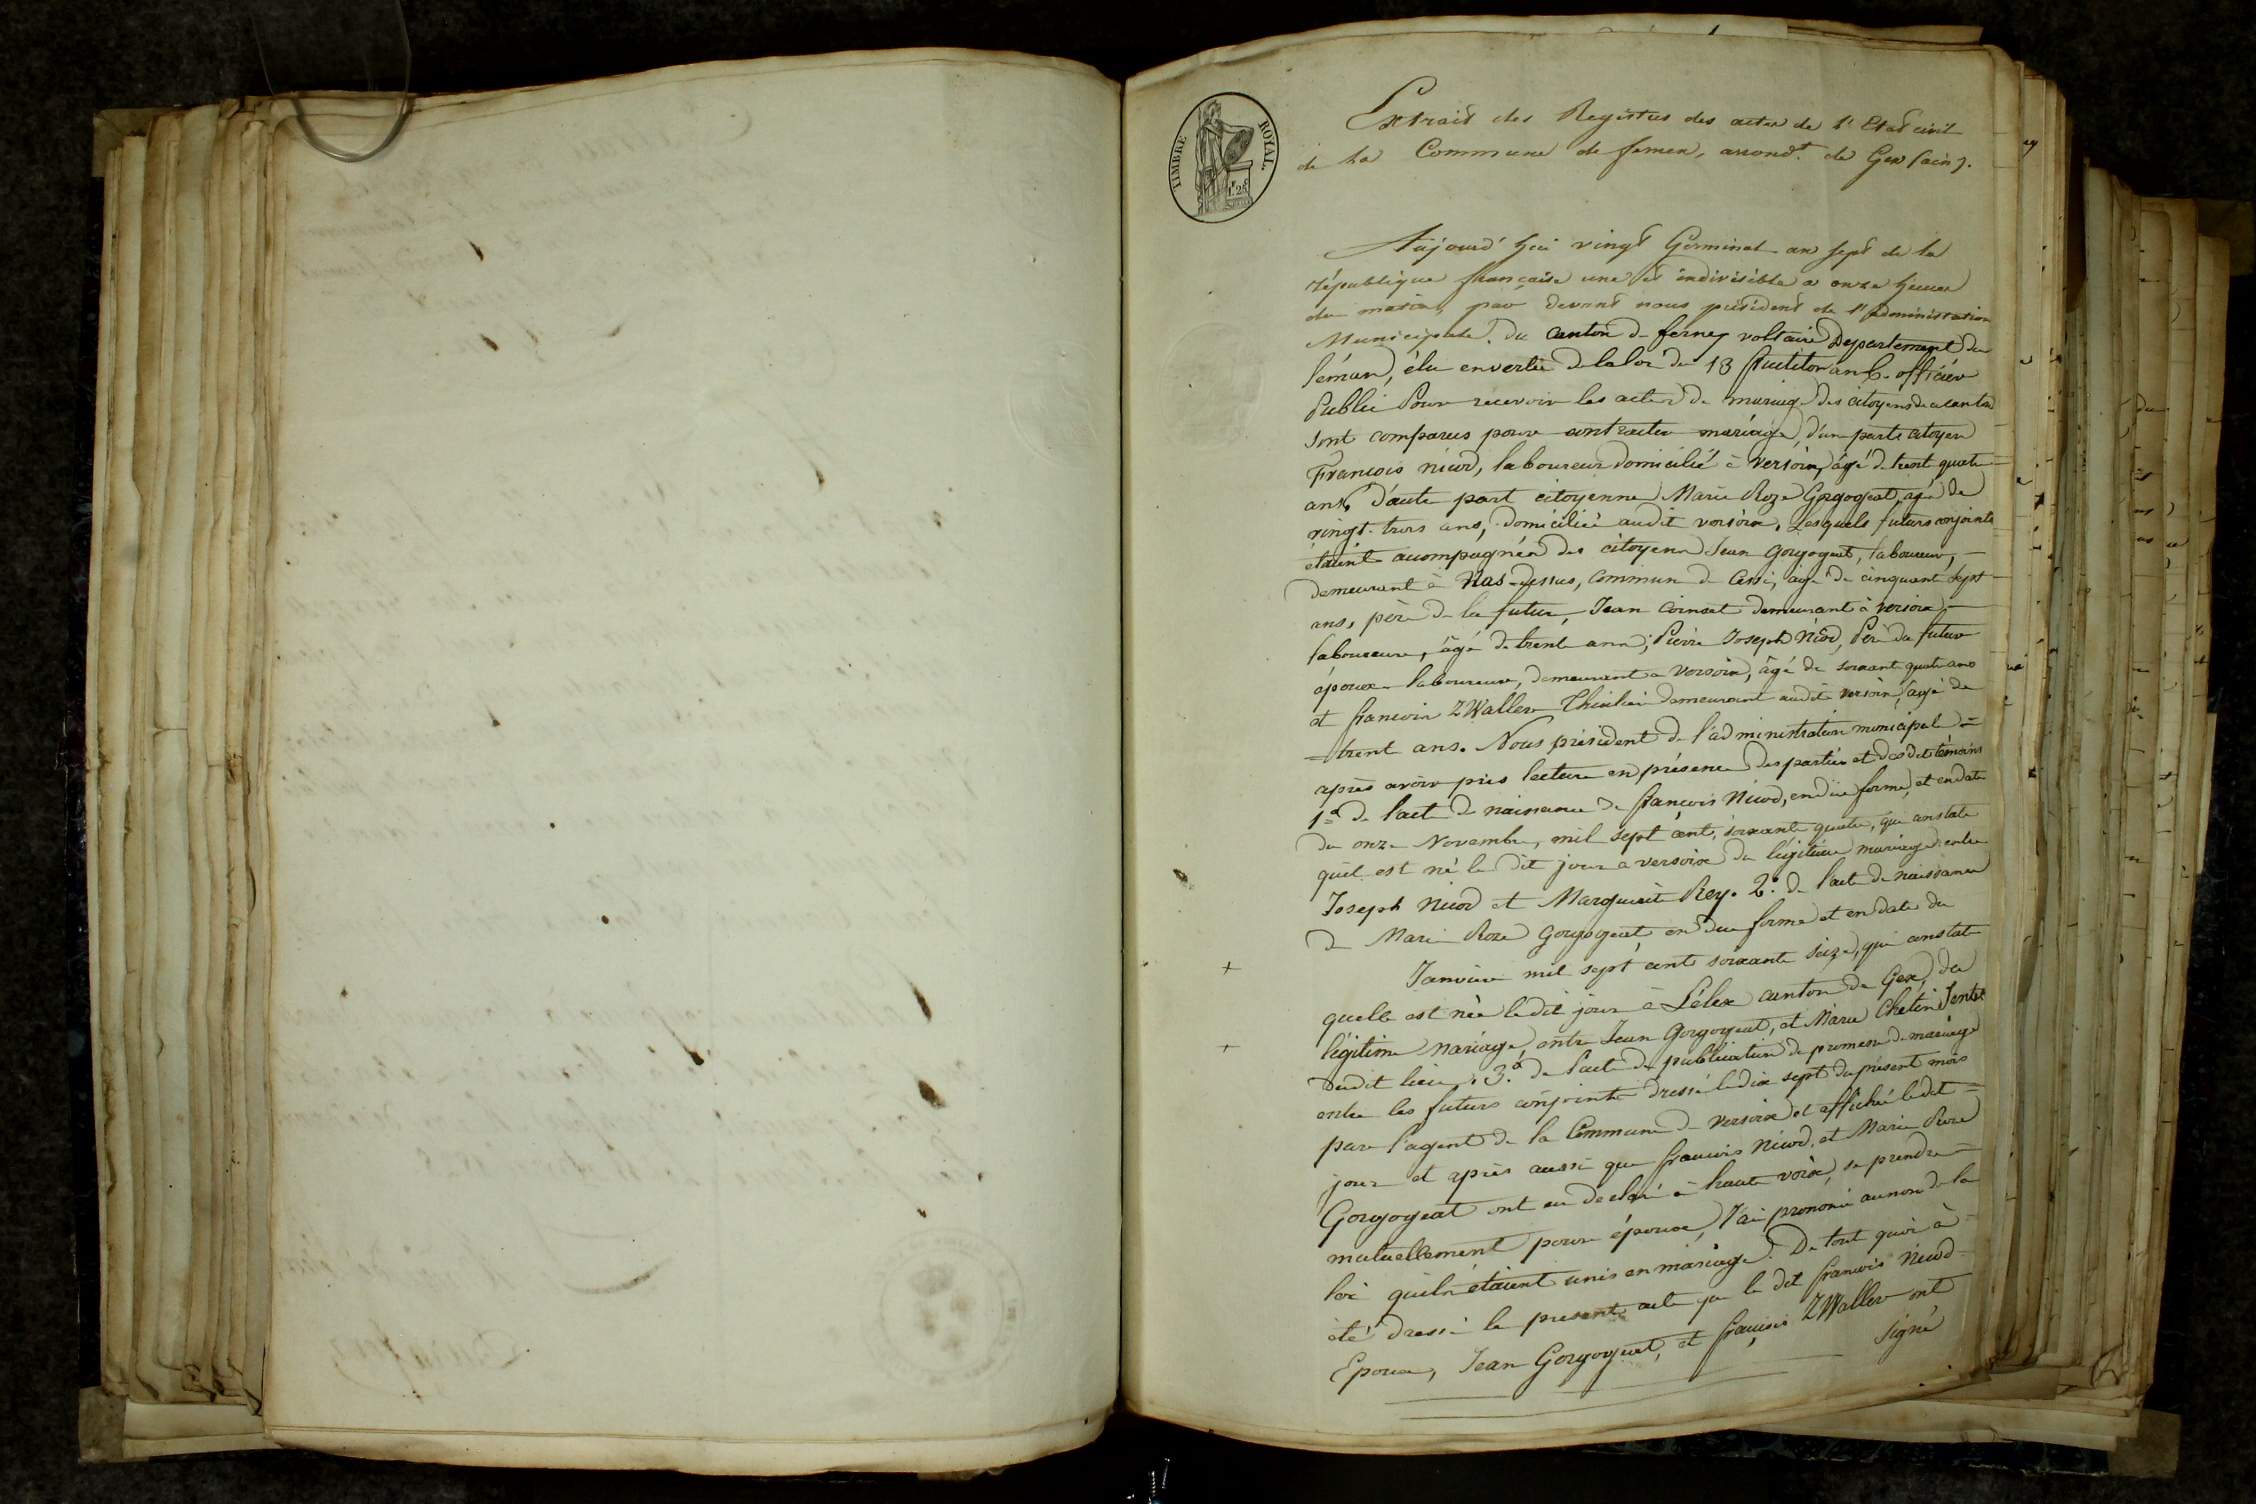 TIMBRE ROYAL
1F. 25C
Extrait des Registres des actes de l'Etat civil
de la Commune de ferney, arrond.t de Gex (ain).
Aujourd'hui vingt Germinal an sept de la
république française une et indivisible a onze heures
du matin, par devant nous président de l'administration
Municipale du canton de ferney voltaire Departement du
léman, élu en vertu de la loi du 13 fructidor an 6. officier
Public Pour recevoir les actes de mariage des citoyens de ce canton
sont comparus pour contracter mariage, d'une part citoyen
François nicod, laboureur domicilié à versoix, âgé de trent quatre
ans, d'autre part citoyenne Marie Roze Gorgogeat, agé de
vingt-trois ans, domicilié audit versoix, Lesquels futurs conjoints
étaient accompagnés des citoyens Jean gorgogeat, laboureur,
demeurant à Nas-dessus, commun de Cessi, age de cinquant sept
ans, père de la future, Jean Coinset demeurant à versoix
laboureure, âgé de trente ans, Pierre Joseph Nicod, Père du futur
époux laboureure, demeurant a versoix, âgé de soixante quatre ans
et francois ZWaller demeurant audit versoix, âgé de
trent ans. Nous président de l'administration municipale
après avoir pris lecture en présence des parties et des dits témoins
1.o de l'acte de naissance de françois Nicod, en düe forme, et en date
du onze Novembre, mil sept cent, soixante quatre, qui constate
quil est né le dit jour a versoix du légitime mariage entre
Joseph Nicod et Marguerite Rey. 2.o de l'acte de naissance
de Marie Roze Gorgogeat, en due forme et en date du
+ Janvier mil sept cent soixante seize, qui constate
quelle est née ledit jour à Lélex canton de Gex, du
+ légitime mariage, entre Jean Gorgogeat, et Marie
dudit lieu, 3.o de l'acte de publication de promesse de mariage
entre les futurs conjoints dressé le dix sept du présent mois
pare l'agent de la Commune de versoix et affiché ledit
jour et après aussi que francois Nicod, et Marie Roze
Gorgogeat ont eu déclaré à haute voix, se prendre
mutuellement pour époux, J'ai prononcé au nom de la
loi quils étaient unis en mariage. De tout quoi à
été dressé le present acte que le dit francois Nicod
Epoux, Jean Gorgogeat, et françois ZWaller ont
signé